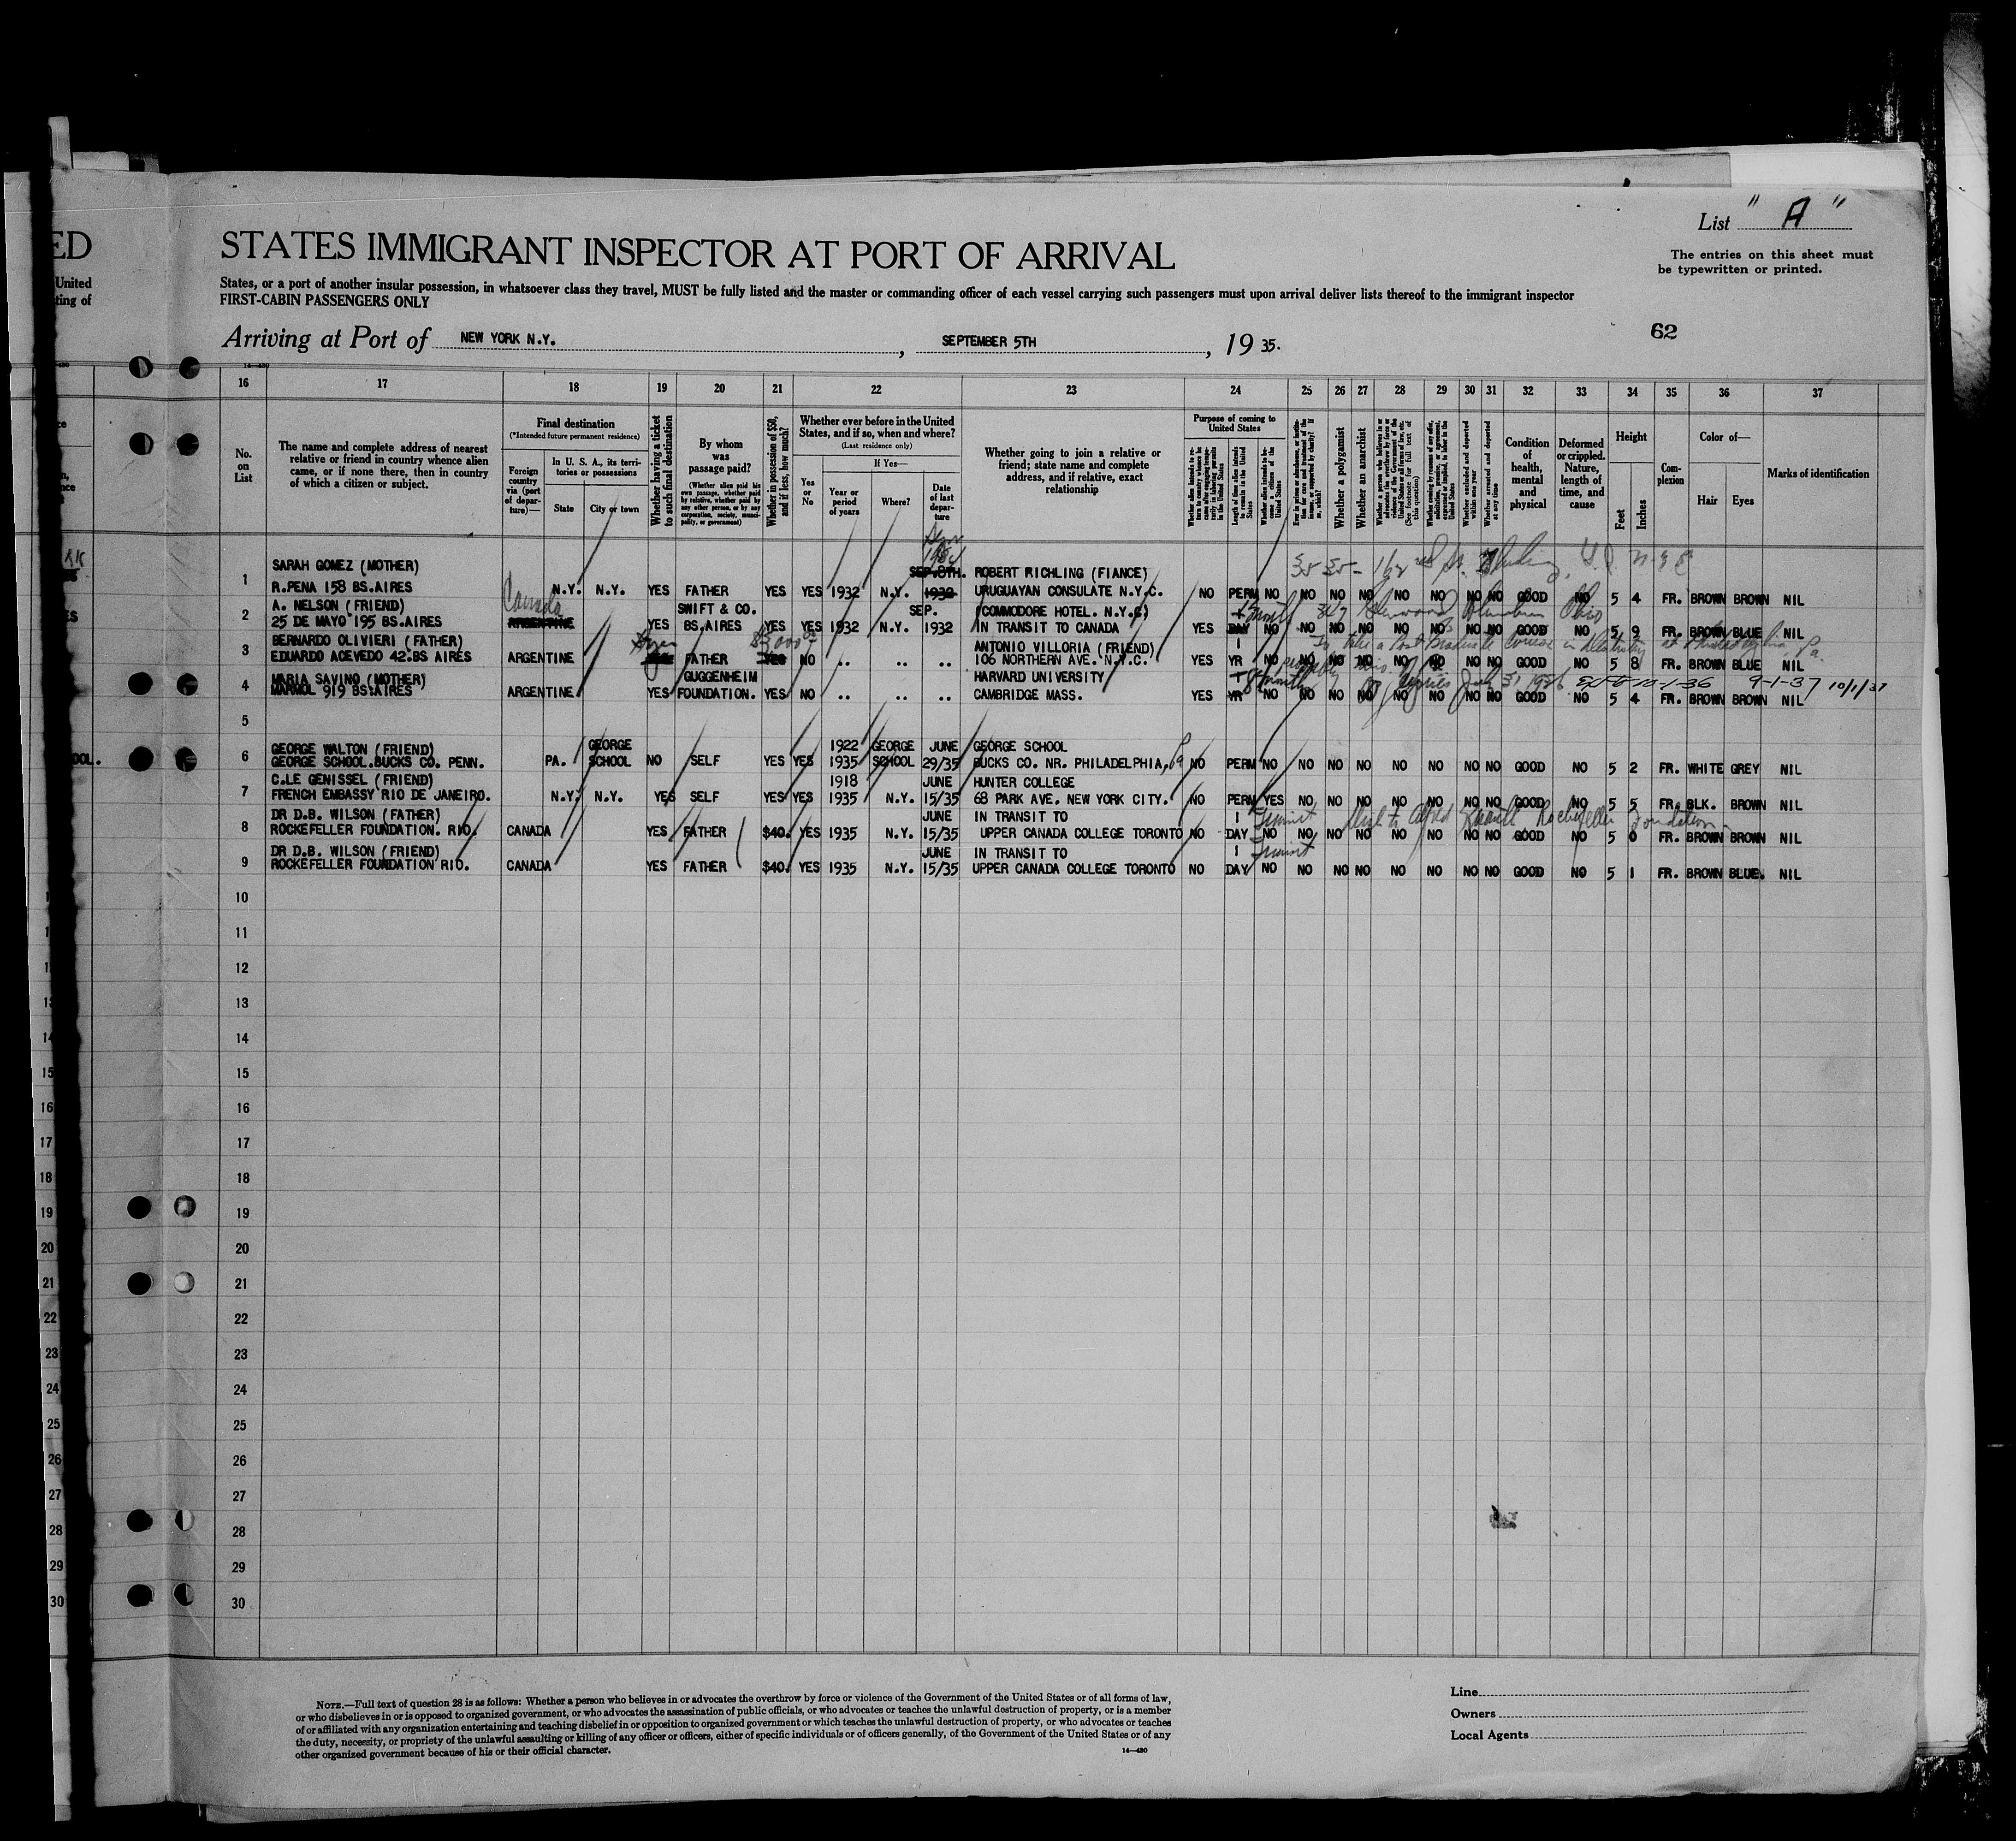 List " A "
ED
STATES IMMIGRANT INSPECTOR AT PORT OF ARRIVAL
The entries on this sheet must
be typewritten or printed.
United
ting of
States, or a port of another insular possession, in whatsoever class they travel, MUST be fully listed and the master or commanding officer of each vessel carrying such passengers must upon arrival deliver lists thereof to the immigrant inspector
FIRST-CABIN PASSENGERS ONLY
Arriving at Port of NEW YORK N.Y. , SEPTEMBER 5TH , 19 35.
62
14—430
16 17 18 19 20 21 22 23 24 25 26 27 28 29 30 31 32 33 34 35 36 37
No. on List
The name and complete address of nearest relative or friend in country whence alien came, or if none there, then in country of which a citizen or subject.
Final destination
(*Intended future permanent residence)
Foreign country via (port of departure)—
In U. S. A., its territories or possessions
State
City or town
Whether having a ticket to such final destination
By whom was passage paid?
(Whether alien paid his own passage, whether paid by relative, whether paid by any other person, or by any corporation, society, municipality, or government)
Whether in possession of $50, and if less, how much?
Whether ever before in the United States, and if so, when and where?
(Last residence only)
Yes or No
If Yes—
Year or period of years
Where?
Date of last departure
Whether going to join a relative or friend; state name and complete address, and if relative, exact relationship
Purpose of coming to United States
Length of time alien intends to remain in the United States
Whether alien intends to become a citizen of the United States
Whether a polygamist
Whether an anarchist
(See footnote for full text of this question)
Whether excluded and deported within one year
Whether arrested and deported at any time
Condition of health, mental and physical
Deformed or crippled. Nature, length of time, and cause
Height
Feet
Inches
Complexion
Color of—
Hair
Eyes
Marks of identification
1934
SARAH GOMEZ (MOTHER) SEP.8TH. ROBERT RICHLING (FIANCE) 35 35 - 162nd St. Flushing,
1 R.PENA 158 BS.AIRES N.Y. N.Y. YES FATHER YES YES 1932 N.Y. 1932 URUGUAYAN CONSULATE N.Y.C. NO PERM NO NO NO NO NO NO NO NO GOOD NO 5 4 FR. BROWN BROWN NIL
Canada
A. NELSON (FRIEND) SWIFT & CO. SEP. (COMMODORE HOTEL. N.Y.C) Columbus Ohio
2 25 DE MAYO 195 BS.AIRES ARGENTINE YES BS.AIRES YES YES 1932 N.Y. 1932 IN TRANSIT TO CANADA YES DAY NO NO NO NO NO NO NO NO GOOD NO 5 9 FR. BROWN BLUE NIL
BERNARDO OLIVIERI (FATHER) ANTONIO VILLORIA (FRIEND) 1 To take a Post Graduate Course in dentistry at Philadelphia, Pa.
3 EDUARDO ACEVEDO 42.BS AIRES ARGENTINE FATHER YES NO .. .. .. 106 NORTHERN AVE. N.Y.C. YES YR NO NO NO NO NO NO NO NO GOOD NO 5 8 FR. BROWN BLUE NIL
MARIA SAVINO (MOTHER) GUGGENHEIM HARVARD UNIVERSITY 1 July 31 1936 10-1-36 9-1-37 10/1/37
4 MARMOL 919 BS.AIRES ARGENTINE YES FOUNDATION. YES NO .. .. .. CAMBRIDGE MASS. YES YR NO NO NO NO NO NO NO NO GOOD NO 5 4 FR. BROWN BROWN NIL
5
GEORGE WALTON (FRIEND) GEORGE 1922 GEORGE JUNE GEORGE SCHOOL
OOL. 6 GEORGE SCHOOL.BUCKS CO. PENN. PA. SCHOOL NO SELF YES YES 1935 SCHOOL 29/35 BUCKS CO. NR. PHILADELPHIA, Pa NO PERM NO NO NO NO NO NO NO NO GOOD NO 5 2 FR. WHITE GREY NIL
C.LE GENISSEL (FRIEND) 1918 JUNE HUNTER COLLEGE
7 FRENCH EMBASSY RIO DE JANEIRO. N.Y. N.Y. YES SELF YES YES 1935 N.Y. 15/35 68 PARK AVE. NEW YORK CITY. NO PERM YES NO NO NO NO NO NO NO GOOD NO 5 5 FR. BLK. BROWN NIL
DR D.B. WILSON (FATHER) JUNE IN TRANSIT TO 1 Transit Rockefeller Foundation
8 ROCKEFELLER FOUNDATION. RIO. CANADA YES FATHER $40. YES 1935 N.Y. 15/35 UPPER CANADA COLLEGE TORONTO NO DAY NO NO NO NO NO NO NO NO GOOD NO 5 0 FR. BROWN BROWN NIL
DR D.B. WILSON (FRIEND) JUNE IN TRANSIT TO 1 Transit
9 ROCKEFELLER FOUNDATION RIO. CANADA YES FATHER $40. YES 1935 N.Y. 15/35 UPPER CANADA COLLEGE TORONTO NO DAY NO NO NO NO NO NO NO NO GOOD NO 5 1 FR. BROWN BLUE. NIL
10
11
12
13
14
15
16
17
18
19
20
21
22
23
24
25
26
27
28
29
30
NOTE.—Full text of question 28 is as follows: Whether a person who believes in or advocates the overthrow by force or violence of the Government of the United States or of all forms of law,
or who disbelieves in or is opposed to organized government, or who advocates the assassination of public officials, or who advocates or teaches the unlawful destruction of property, or is a member
of or affiliated with any organization entertaining and teaching disbelief in or opposition to organized government or which teaches the unlawful destruction of property, or who advocates or teaches
the duty, necessity, or propriety of the unlawful assaulting or killing of any officer or officers, either of specific individuals or of officers generally, of the Government of the United States or of any
other organized government because of his or their official character.
14—430
Line
Owners
Local Agents